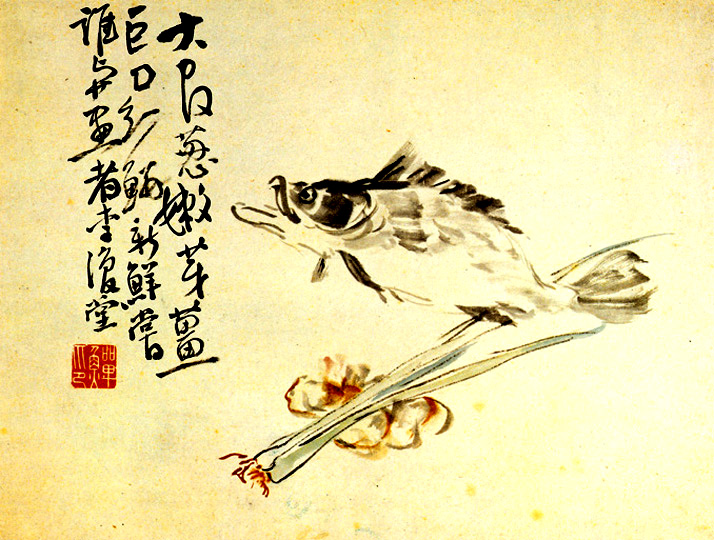 大官葱嫩芽薑
巨口細鱗新鮮嘗
誰與畫者李復堂